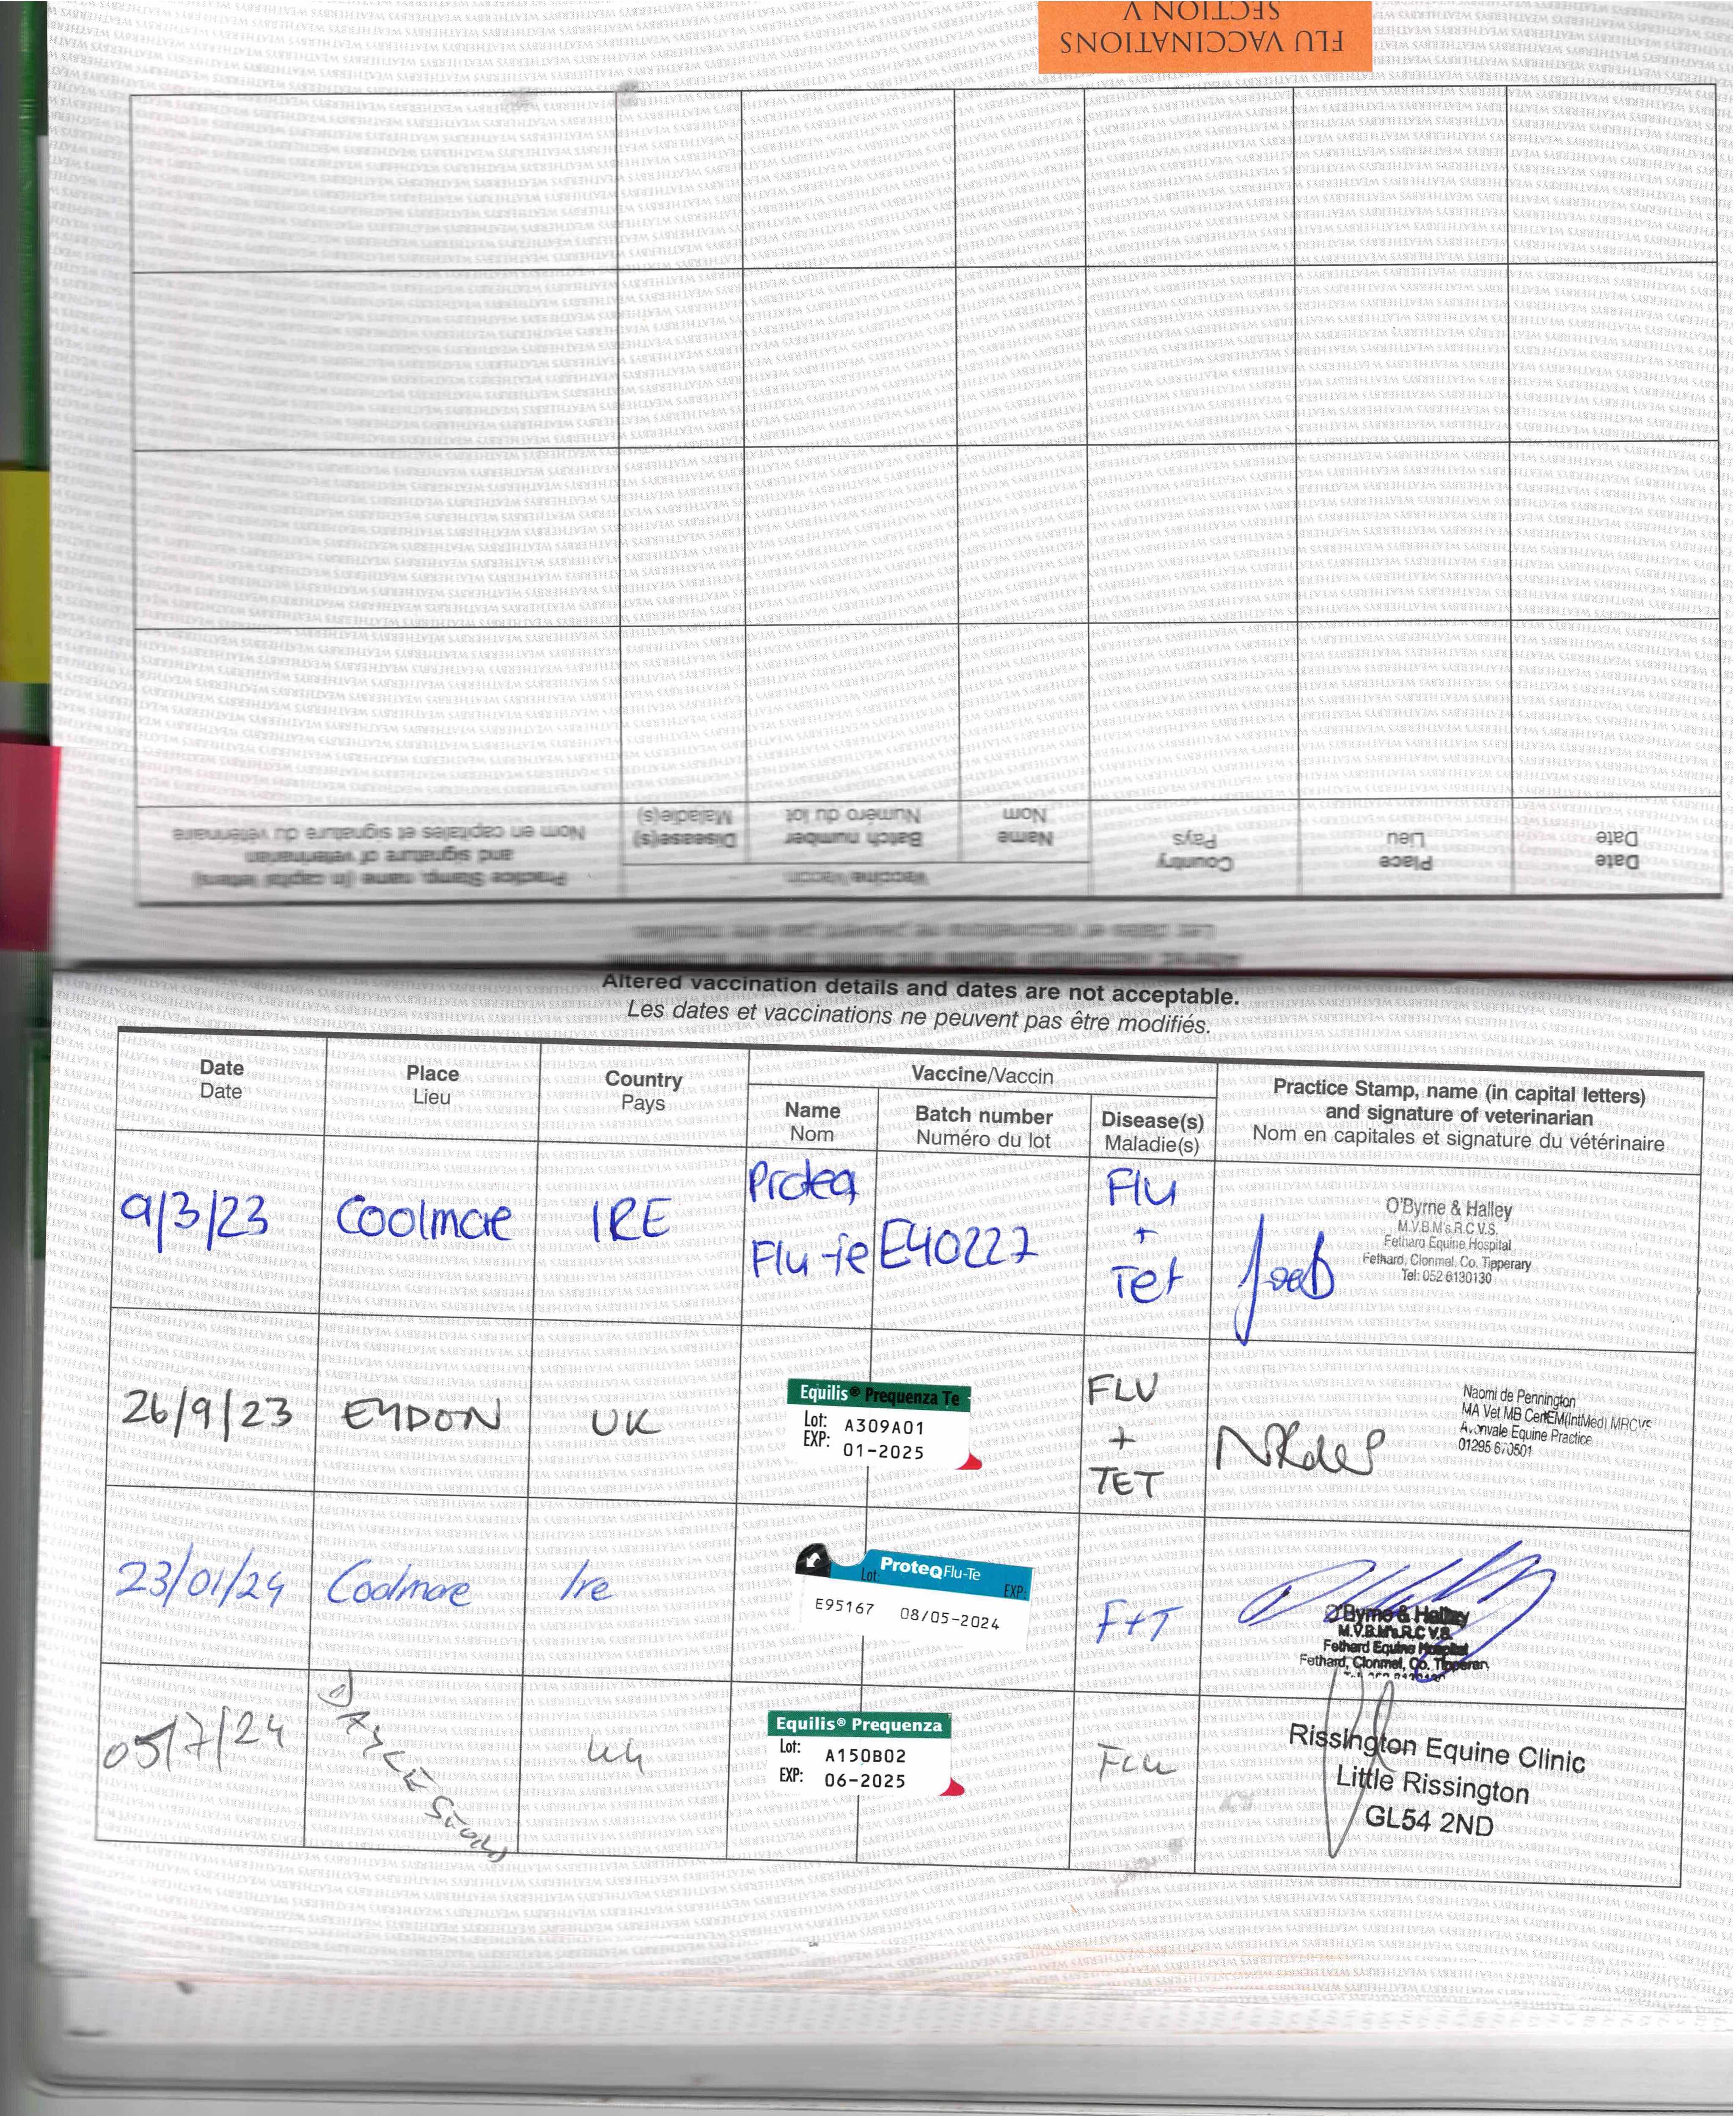 FLU VACCINATIONS
SECTION V
Date
Date
Place
Lieu
Country
Pays
Vaccine/Vaccin
Name
Nom
Batch number
Numéro du lot
Disease(s)
Maladie(s)
Practice Stamp, name (in capital letters)
and signature of veterinarian
Nom en capitales et signature du vétérinaire
Altered vaccination details and dates are not acceptable.
Les dates et vaccinations ne peuvent pas être modifiés.
Date
Date
Place
Lieu
Country
Pays
Vaccine/Vaccin
Name
Nom
Batch number
Numéro du lot
Disease(s)
Maladie(s)
Practice Stamp, name (in capital letters)
and signature of veterinarian
Nom en capitales et signature du vétérinaire
9/3/23
Coolmore
IRE
Proteq
Flu-te
E40227
Flu
+
Tet
O'Byrne & Halley
M.V.B.M's.R.C.V.S.
Fethard Equine Hospital
Fethard, Clonmel, Co. Tipperary
Tel: 052 6130130
26/9/23
EYDON
UK
Equilis® Prequenza Te
Lot: A309A01
EXP: 01-2025
FLU
+
TET
Naomi de Pennington
MA Vet MB CertEM(IntMed) MRCVS
Avonvale Equine Practice
01295 670501
23/01/24
Coolmore
Ire
ProteqFlu-Te
Lot: EXP:
E95167 08/05-2024
F+T
O'Byrne & Halley
M.V.B.M's.R.C.V.S.
Fethard Equine Hospital
Fethard, Clonmel, Co. Tipperary
05/7/24
Uk
Equilis® Prequenza
Lot: A150B02
EXP: 06-2025
Flu
Rissington Equine Clinic
Little Rissington
GL54 2ND